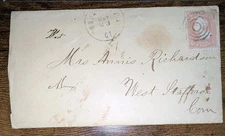 Mrs Annis Richardson
West Stafford
Con